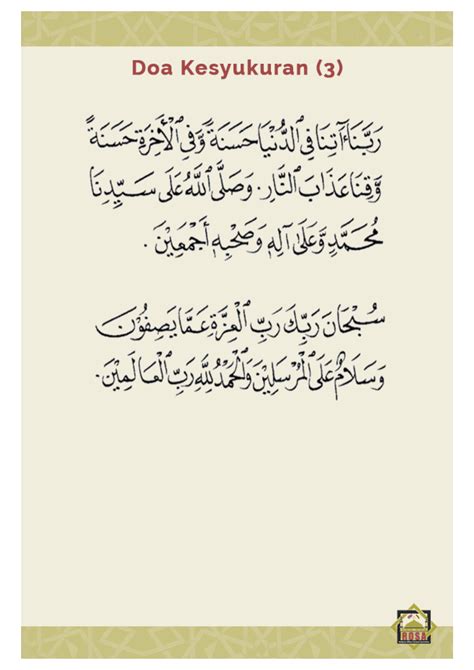 Doa Kesyukuran (3)
رَبَّنَا ءَاتِنَا فِي ٱلدُّنْيَا حَسَنَةً وَّفِي ٱلْأَخِرَةِ حَسَنَةً
وَّقِنَا عَذَابَ ٱلنَّارِ. وَصَلَّى ٱللَّهُ عَلَى سَيِّدِنَا
مُحَمَّدٍ وَّعَلَى آلِهِ وَصَحْبِهِ أَجْمَعِيْنَ .
سُبْحَانَ رَبِّكَ رَبِّ ٱلْعِزَّةِ عَمَّا يَصِفُوْنَ
وَسَلَامٌ عَلَى ٱلْمُرْسَلِيْنَ وَٱلْحَمْدُ لِلَّهِ رَبِّ ٱلْعَالَمِيْنَ.
ROSA